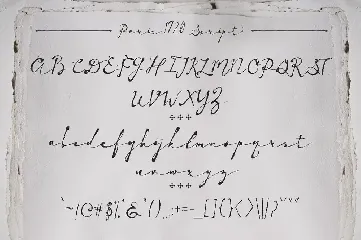 Paris 1716 Script
A B C D E F G H I J K L M N O P Q R S T
U V W X Y Z
+++
a b c d e f g h i j k l m n o p q r s t
u v w x y z
+++